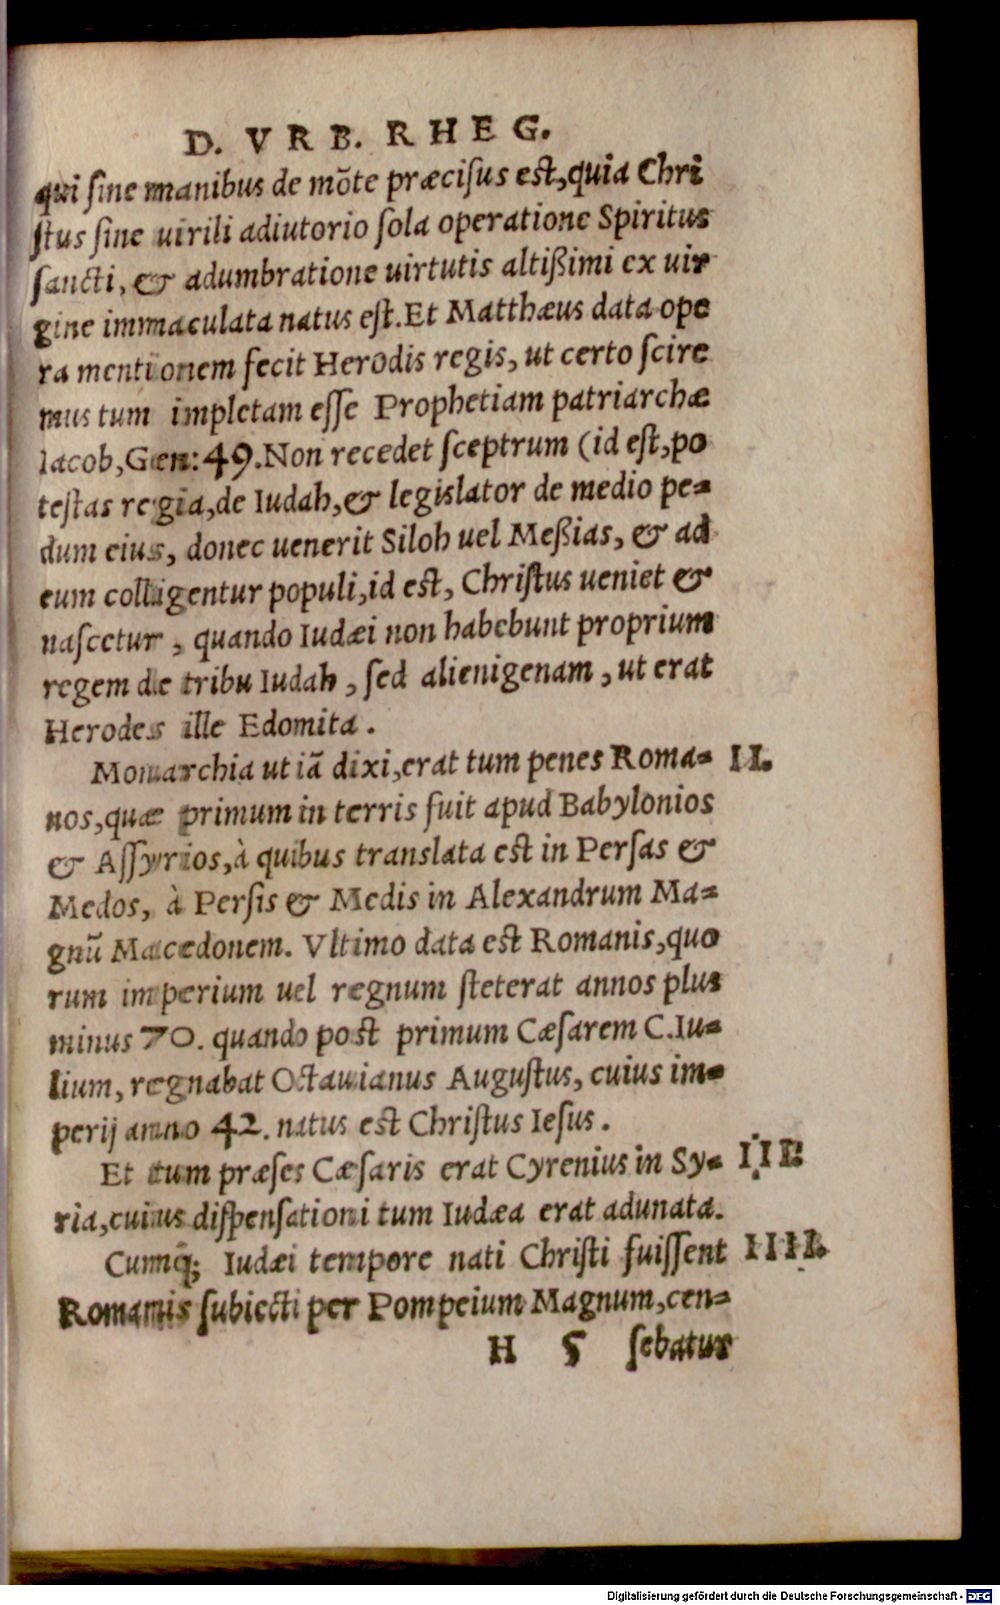 D. VRB. RHEG.
qui ſine manibus de mõte præciſus est, quia Chri
ſtus ſine uirili adiutorio ſola operatione Spiritus
ſancti, & adumbratione uirtutis altißimi ex uir
gine immaculata natus eſt. Et Matthæus data ope
ra mentionem fecit Herodis regis, ut certo ſcire
mus tum impletam eſſe Prophetiam patriarchæ
Iacob, Gen: 49. Non recedet ſceptrum (id eſt, po
teſtas regia, de Iudah, & legislator de medio pe=
dum eius, donec uenerit Siloh uel Meßias, & ad
eum colligentur populi, id est, Chriſtus ueniet &
naſcetur, quando Iudæi non habebunt proprium
regem de tribu Iudah, ſed alienigenam, ut erat
Herodes ille Edomita.
Monarchia ut iã dixi, erat tum penes Roma= II.
nos, quæ primum in terris fuit apud Babylonios
& Aſſyrios, à quibus translata est in Perſas &
Medos, à Perſis & Medis in Alexandrum Ma=
gnũ Macedonem. Vltimo data est Romanis, quo
rum imperium uel regnum ſteterat annos plus
minus 70. quando post primum Cæſarem C. Iu=
lium, regnabat Octauianus Auguſtus, cuius im=
perij anno 42. natus est Chriſtus Ieſus.
Et tum præſes Cæſaris erat Cyrenius in Sy= III.
ria, cuius diſpenſationi tum Iudæa erat adunata.
Cumq́; Iudæi tempore nati Chriſti fuiſſent IIII.
Romanis ſubiecti per Pompeium Magnum, cen=
H 5 ſebatur
Digitalisierung gefördert durch die Deutsche Forschungsgemeinschaft - DFG